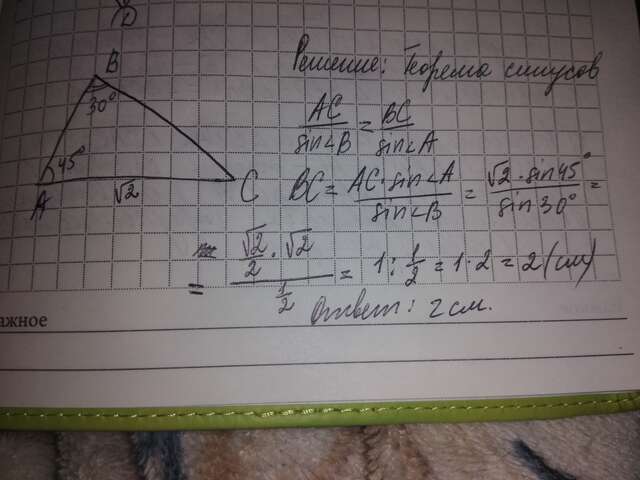 B
30°
45°
A
√2
C
Решение: Теорема синусов
AC/sin∠B = BC/sin∠A
BC = AC·sin∠A/sin∠B = √2·sin45°/sin30° =
= (√2/2·√2)/(1/2) = 1:1/2 = 1·2 = 2(см)
Ответ: 2см.
ажное